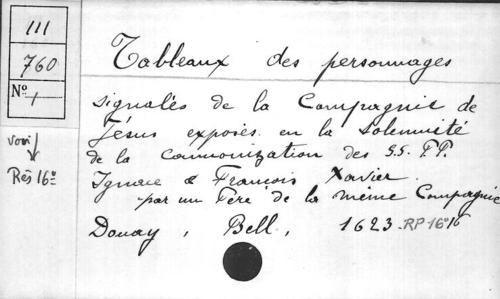 III
760
N° 1
voir
Rés 16°
Tableaux des personnages
signalés de la Compagnie de
Jésus exposés en la solemnité
de la cannonization des S.S. P.P.
Ignace & Francois Xavier
par un Père de la même Compagnie
Douay, Bell, 1623.